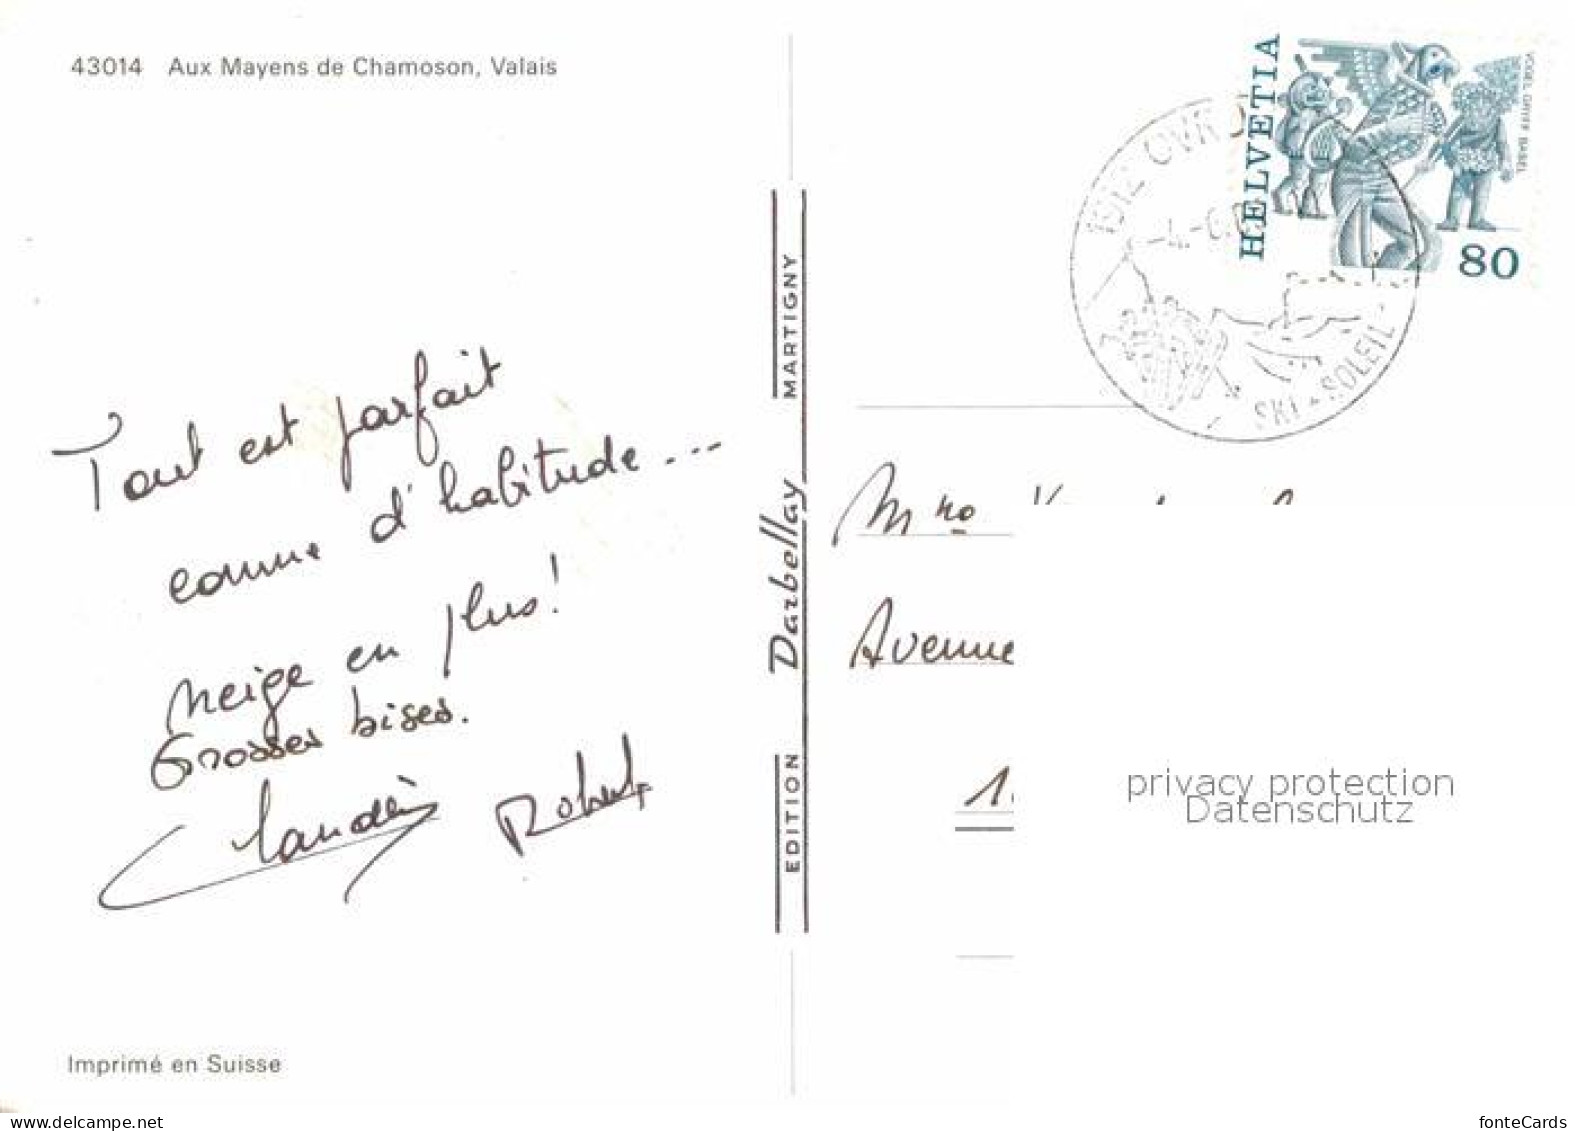 43014 Aux Mayens de Chamoson, Valais
Tout est parfait
comme d'habitude...
neige en plus!
Grosses bises.
Robert
Imprimé en Suisse
EDITION Darbellay MARTIGNY
HELVETIA
VOGEL GRYFF BASEL
80
1912 OVR
SKI + SOLEIL
Mme
Avenue
privacy protection
Datenschutz
www.delcampe.net
fonteCards